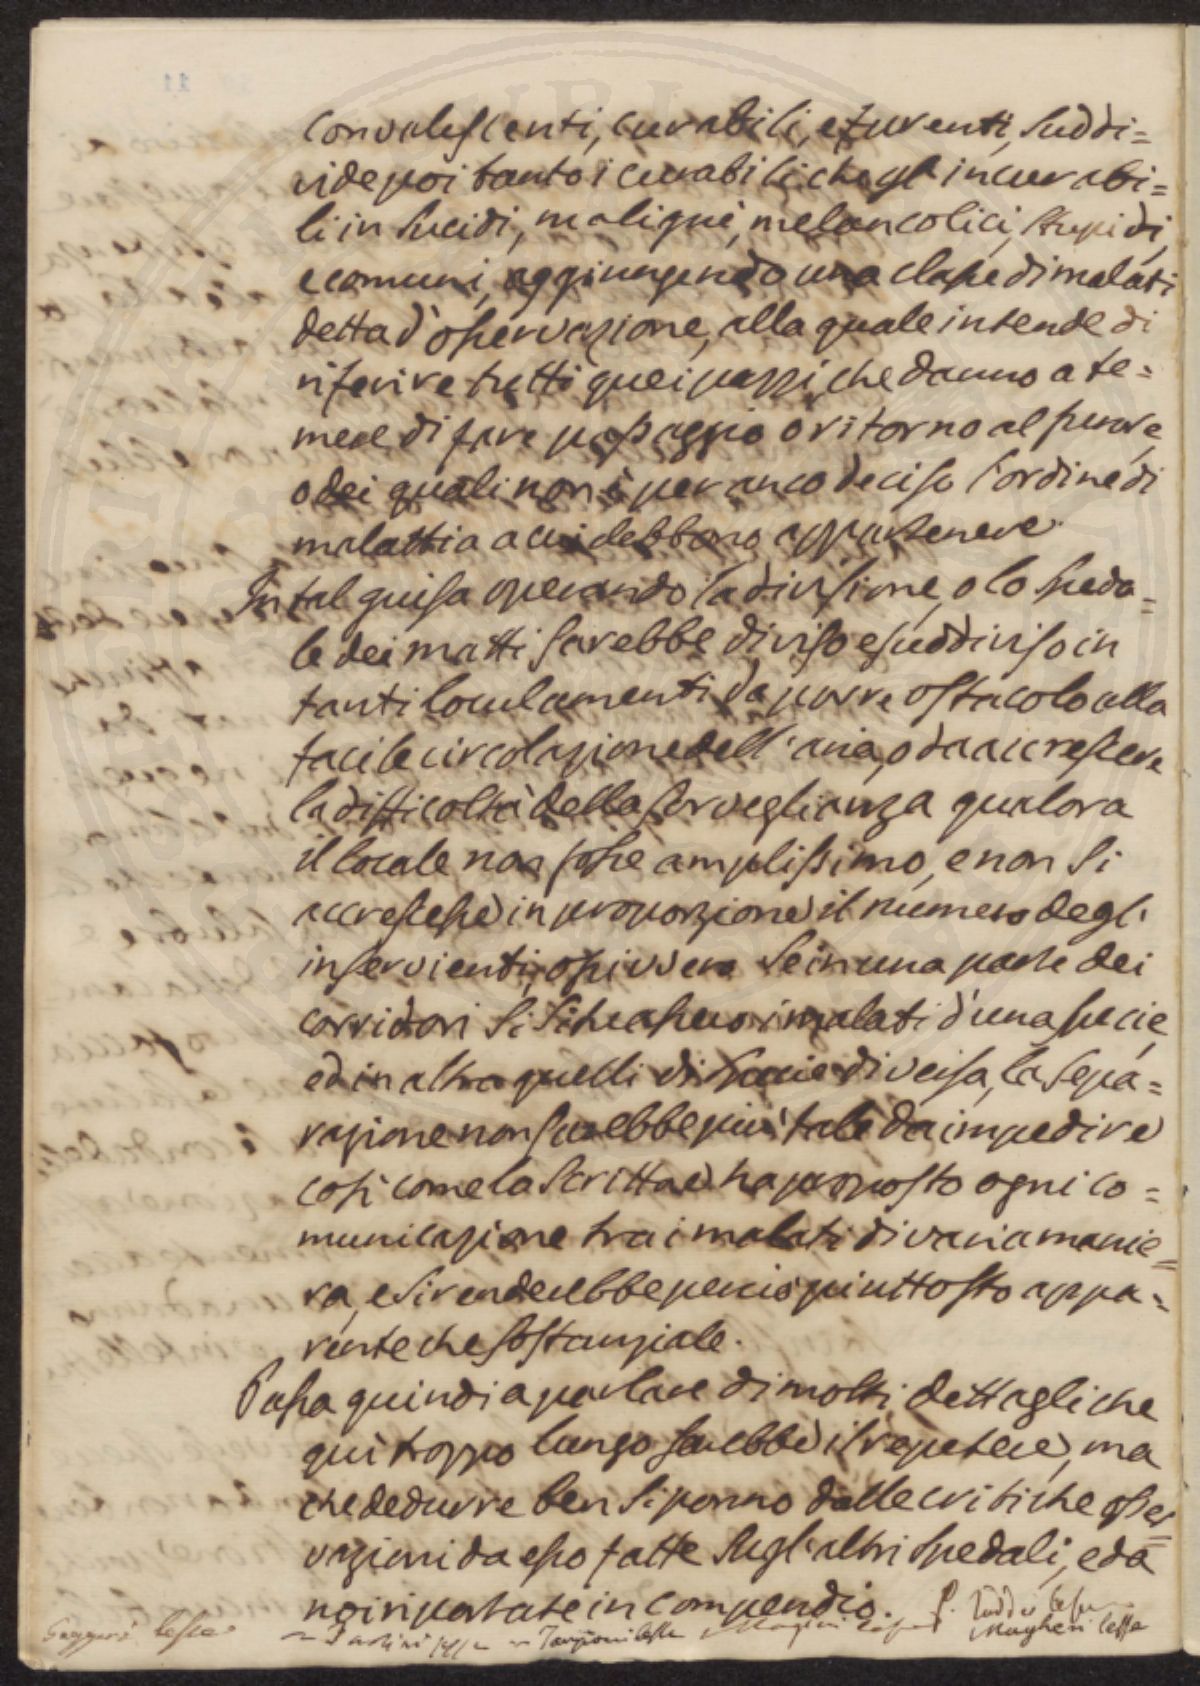 convalescenti, curabili, e furenti, suddi=
vide poi tanto i curabili che gl'incurabi=
li in sucidi, maligni, melancolici, stupidi,
e comuni, aggiungendo una classe di malati
detta d'osservazione, alla quale intende di
riferire tutti quei pazzi, che danno a te=
mere di fare passaggio o ritorno al furore,
o dei quali non è per anco deciso l'ordine di
malattia a cui debbono appartenere.
In tal guisa operando la divisione, o lo speda=
le dei matti sarebbe diviso e suddiviso in
tanti loculamenti da porre ostacolo alla
facile circolazione dell'aria, o da accrescere
la difficoltà della sorveglianza qualora
il locale non fosse amplissimo, e non si
accrescesse in proporzione il numero degl'
inservienti, ossivvero se in una parte dei
corridori si situassero i malati d'una specie,
ed in altra quelli di specie diversa, la sepa=
razione non sarebbe più tale da impedire
così come la scrittae ha proposto ogni co=
municazione tra i malati di varia manie=
ra, e si renderebbe perciò piuttosto appa=
rente che sostanziale.
Passa quindi a parlare di molti dettagli che
quì troppo lungo sarebbe il repetere, ma
che dedurre ben si ponno dalle critiche osser=
vazioni da esso fatte sugl'altri spedali, e da
noi riportate in compendio.
lesse Magheri lesse